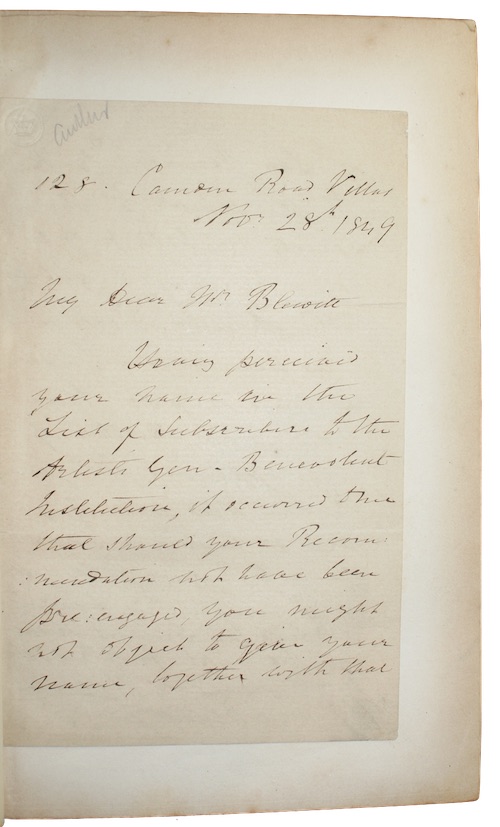 Author
128. Camden Road Villas
Novr 28th 1849
My Dear Mr Blewitt
Having perceived
your name in the
List of Subscribers to the
Artists Gen - Benevolent
Institution, it occurred to me
that should your Recom:
:mendation not have been
pre:engaged, you might
not object to give your
name, together with that